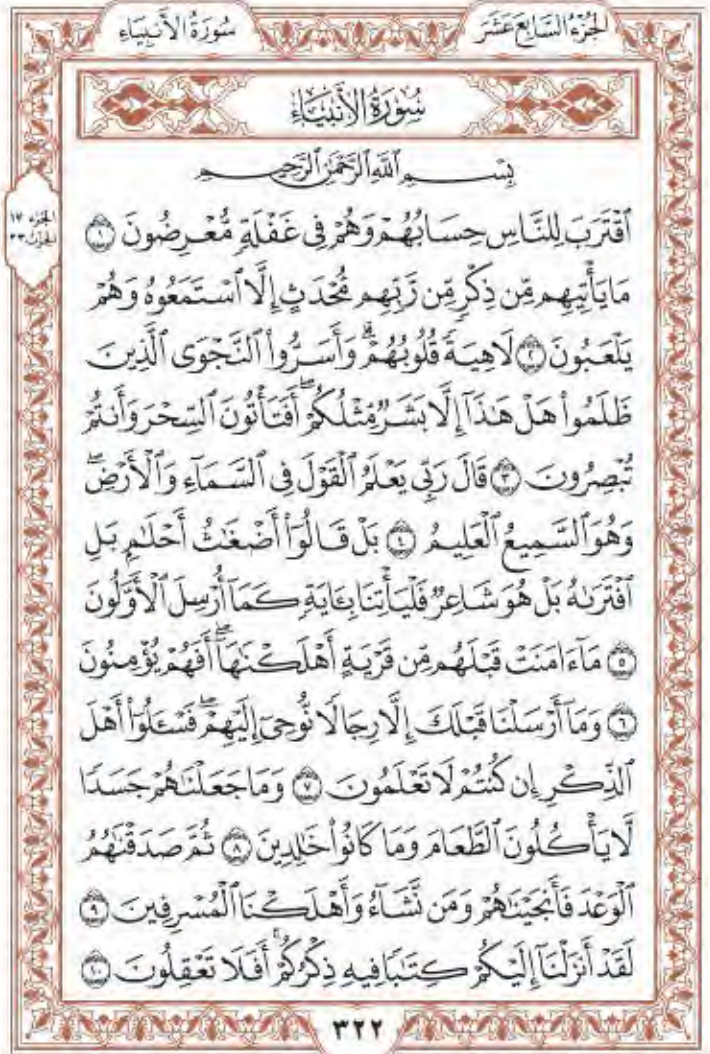 الجزء السابع عشر
سورة الأنبياء
سُورَةُ الأَنبِيَاءِ
بِسْمِ ٱللَّهِ ٱلرَّحْمَٰنِ ٱلرَّحِيمِ
ٱقْتَرَبَ لِلنَّاسِ حِسَابُهُمْ وَهُمْ فِي غَفْلَةٍ مُّعْرِضُونَ ١
مَا يَأْتِيهِم مِّن ذِكْرٍ مِّن رَّبِّهِم مُّحْدَثٍ إِلَّا ٱسْتَمَعُوهُ وَهُمْ
يَلْعَبُونَ ٢ لَاهِيَةً قُلُوبُهُمْ ۗ وَأَسَرُّوا۟ ٱلنَّجْوَى ٱلَّذِينَ
ظَلَمُوا۟ هَلْ هَٰذَآ إِلَّا بَشَرٌ مِّثْلُكُمْ ۖ أَفَتَأْتُونَ ٱلسِّحْرَ وَأَنتُمْ
تُبْصِرُونَ ٣ قَالَ رَبِّي يَعْلَمُ ٱلْقَوْلَ فِي ٱلسَّمَآءِ وَٱلْأَرْضِ ۖ
وَهُوَ ٱلسَّمِيعُ ٱلْعَلِيمُ ٤ بَلْ قَالُوٓا۟ أَضْغَٰثُ أَحْلَٰمٍ بَلِ
ٱفْتَرَىٰهُ بَلْ هُوَ شَاعِرٌ فَلْيَأْتِنَا بِـَٔايَةٍ كَمَآ أُرْسِلَ ٱلْأَوَّلُونَ
٥ مَآ ءَامَنَتْ قَبْلَهُم مِّن قَرْيَةٍ أَهْلَكْنَٰهَآ ۖ أَفَهُمْ يُؤْمِنُونَ
٦ وَمَآ أَرْسَلْنَا قَبْلَكَ إِلَّا رِجَالًا نُّوحِىٓ إِلَيْهِمْ ۖ فَسْـَٔلُوٓا۟ أَهْلَ
ٱلذِّكْرِ إِن كُنتُمْ لَا تَعْلَمُونَ ٧ وَمَا جَعَلْنَٰهُمْ جَسَدًا
لَّا يَأْكُلُونَ ٱلطَّعَامَ وَمَا كَانُوا۟ خَٰلِدِينَ ٨ ثُمَّ صَدَقْنَٰهُمُ
ٱلْوَعْدَ فَأَنجَيْنَٰهُمْ وَمَن نَّشَآءُ وَأَهْلَكْنَا ٱلْمُسْرِفِينَ ٩
لَقَدْ أَنزَلْنَآ إِلَيْكُمْ كِتَٰبًا فِيهِ ذِكْرُكُمْ ۖ أَفَلَا تَعْقِلُونَ ١٠
الجزء ١٧
الحزب ٣٣
٣٢٢